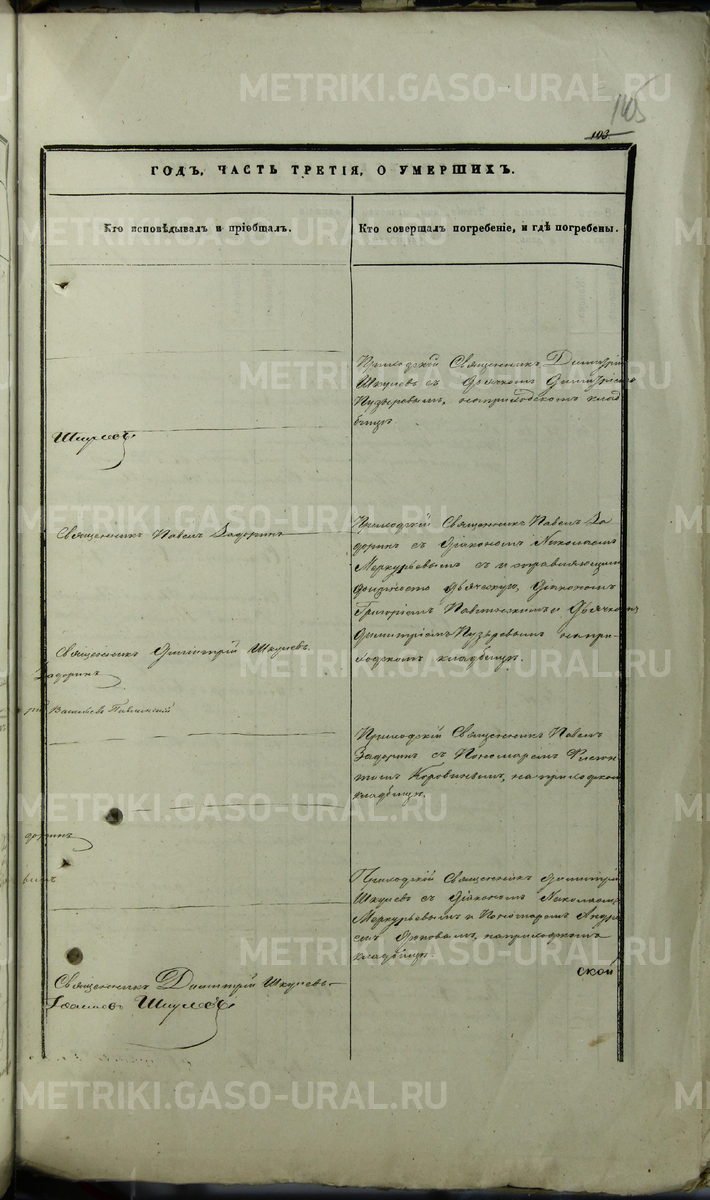 METRIKI.GASO-URAL.RU
145
103
ГОДЪ, ЧАСТЬ ТРЕТІЯ, О УМЕРШИХЪ.
Кто исповѣдывалъ и пріобщалъ.
Кто совершалъ погребеніе, и гдѣ погребены.
Приходскій Священникъ Димитрій
Шкулевъ съ Дьячкомъ Димитріемъ
Пузыревымъ, на приходскомъ клад
бищѣ
Шкулевъ
Священникъ Павелъ Задоринъ
Приходскій Священникъ Павелъ За
доринъ съ Діакономъ Николаемъ
Меркурьевымъ съ и справляющимъ
должность дьяческую, Діакономъ
Григоріемъ Павлинскимъ и Дьячкомъ
Димитріемъ Пузыревымъ на при-
ходскомъ кладбищѣ.
Священникъ Димитрій Шкулевъ.
Задоринъ
рій Васильевъ Павлинскій
Приходскій Священникъ Павелъ
Задоринъ съ Пономаремъ
Коровинымъ, на приходском
кладбищѣ.
доринъ
Приходскій Священникъ Димитрій
Шкулевъ съ Діакономъ Николаемъ
Меркурьевымъ и Пономаремъ Андре
емъ на приходскомъ
кладбищѣ.
ской
Священникъ Димитрій Шкулевъ
Шкулевъ
METRIKI.GASO-URAL.RU